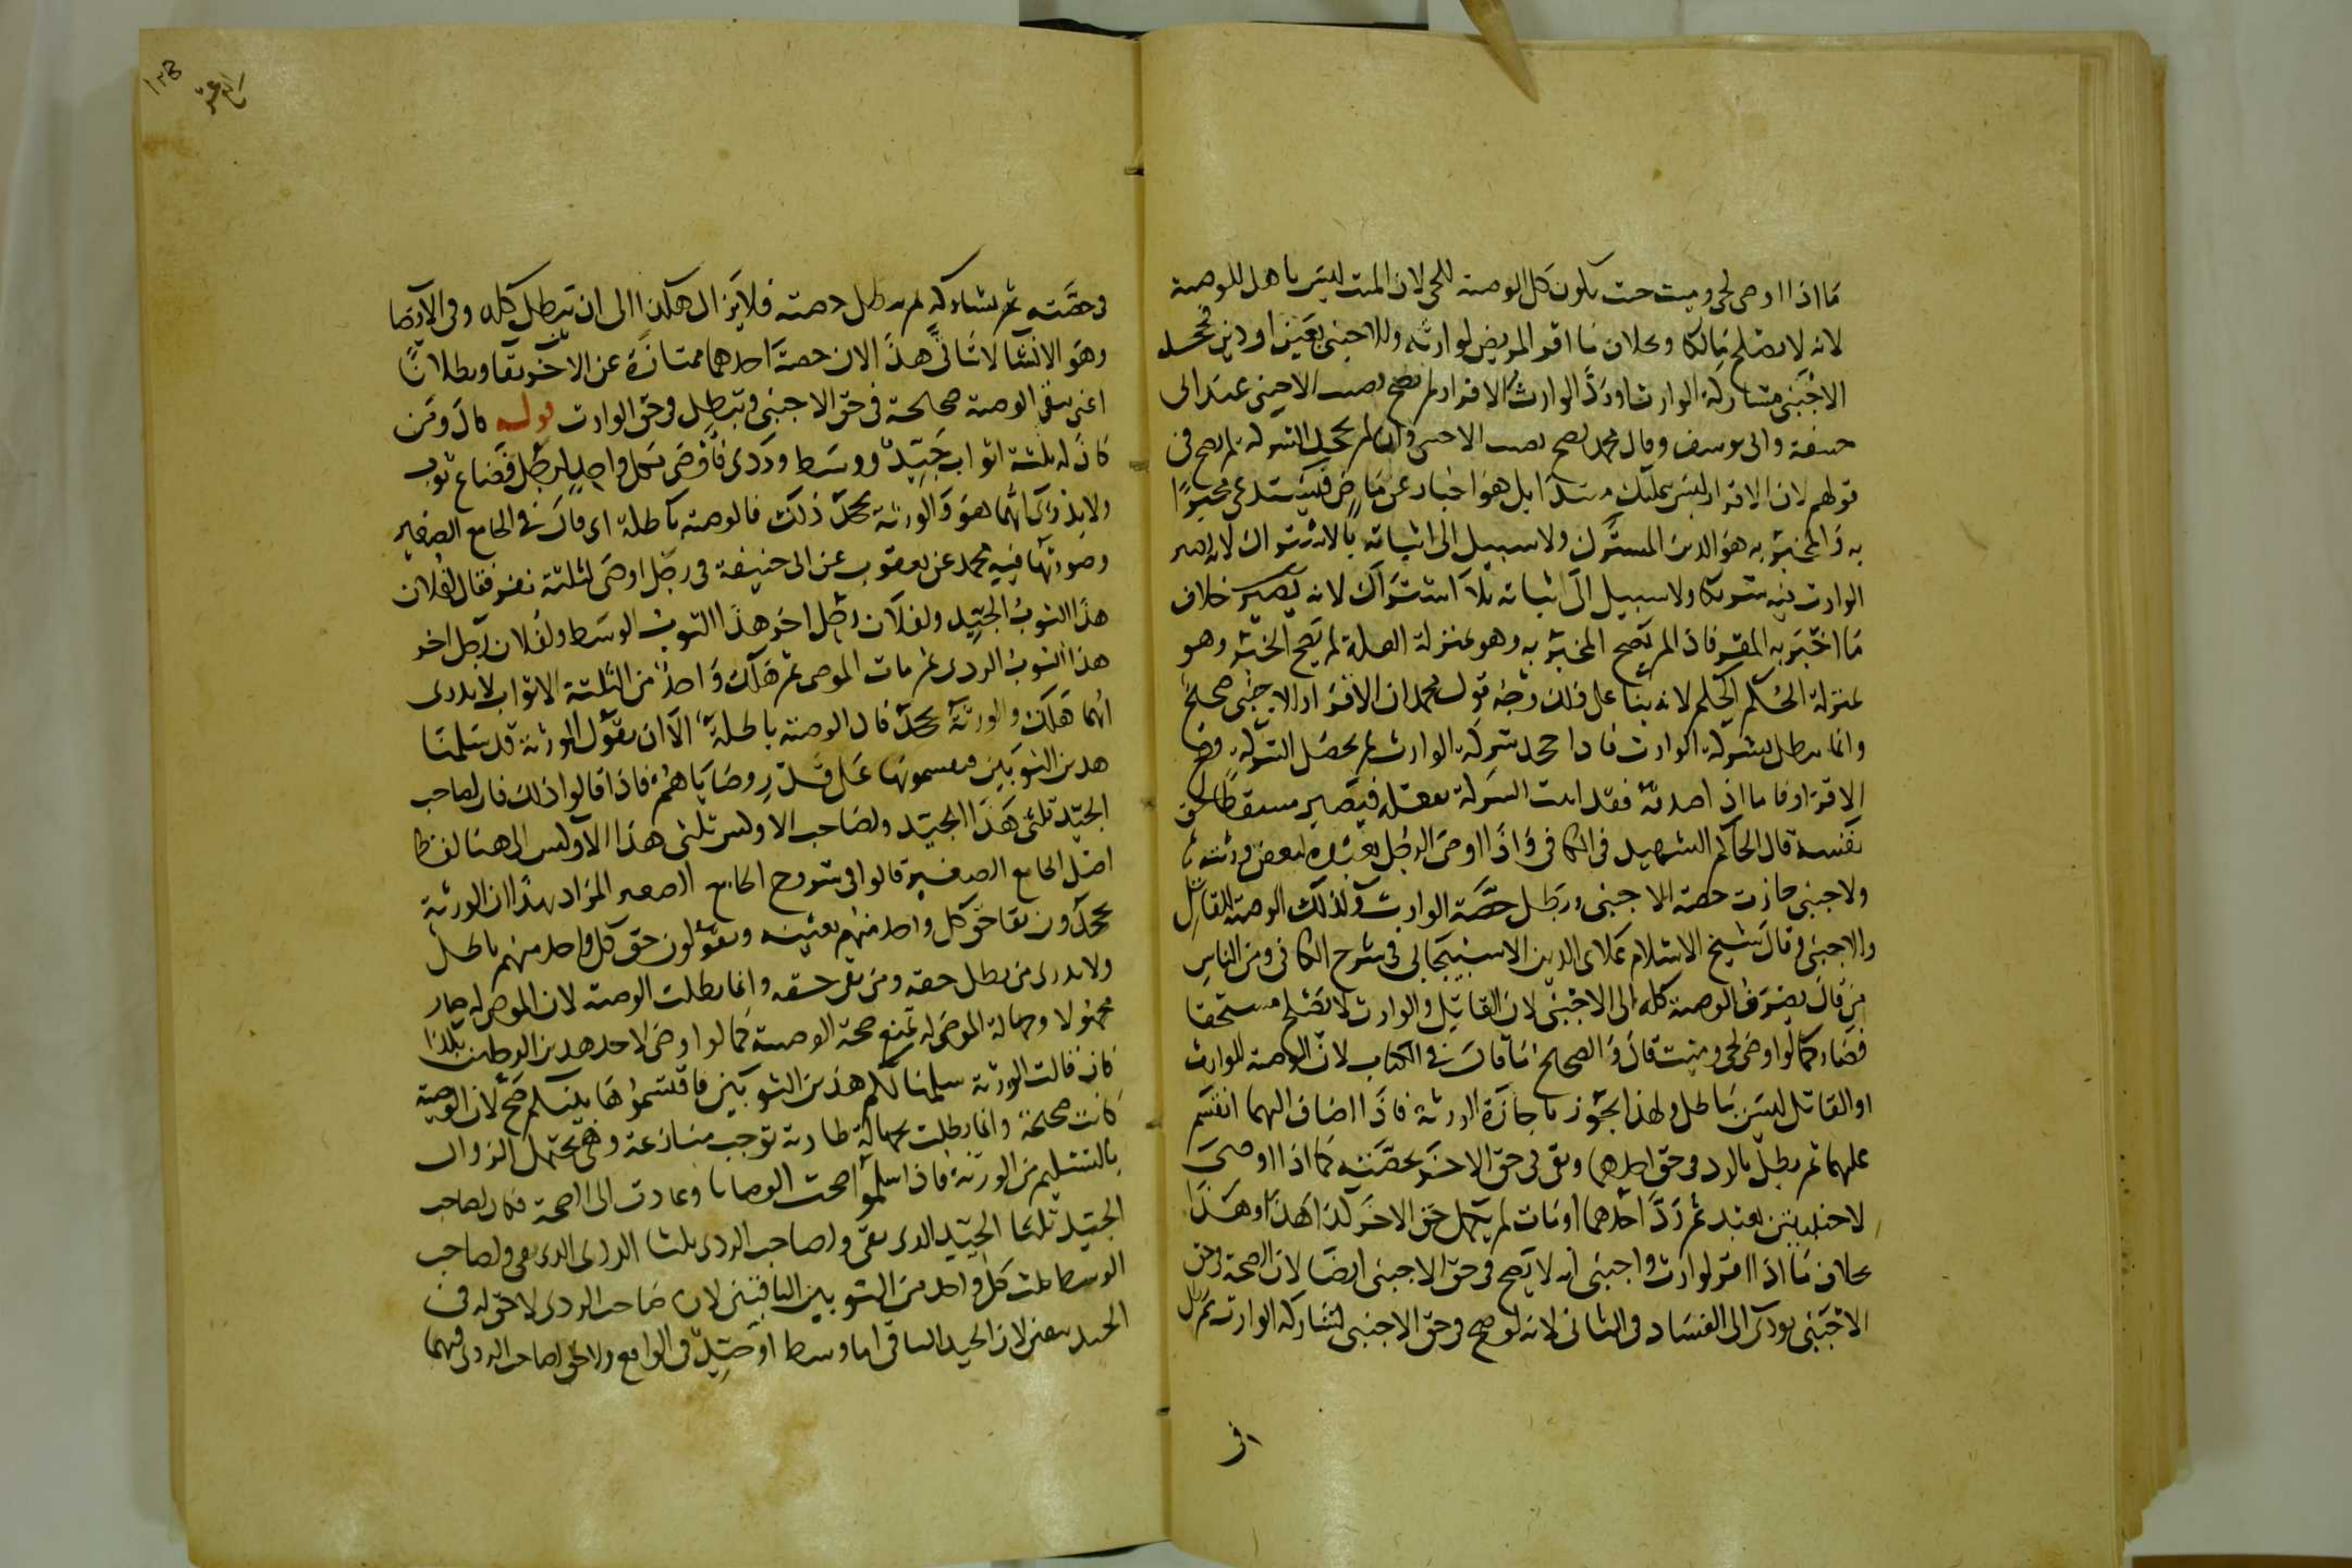 ما اذا اوصى لحي وميت حيث يكون كل الوصية للحي لان الميت ليس باهل للوصية
لانه لا يصلح مالكا وبخلاف ما اقر المريض لوارثه وللاجنبي بعين او دين فجحد
الاجنبي مشاركة الوارث او رد الوارث الاقرار لم يصح نصيب الاجنبي عند ابي
حنيفة وابي يوسف وقال محمد يصح نصيب الاجنبي وان لم يجحد الشركة لم يصح في
قولهم لان الاقرار ليس بتمليك مبتدا بل هو اخبار عن ماض فيستدعي مخبرا
به والمخبر به هو الدين المشترك ولا سبيل الى اثباته بالاشتراك لانه يصير
الوارث فيه شريكا ولا سبيل الى اثباته بلا اشتراك لانه يصير خلاف
ما اخبر به المقر فاذا لم يصح المخبر به وهو بمنزلة العلة لم يصح الخبر وهو
بمنزلة الحكم لانه بنا على ذلك وجه قول محمد ان الاقرار للاجنبي صحيح
وانما يبطل بشركة الوارث فاذا جحد شركة الوارث لم يحصل الشركة وصح
الاقرار فاما اذا صدقه فقد اثبت الشركة فيصير مسقطا حق
نفسه قال الحاكم الشهيد في الكافي واذا اوصى الرجل لبعض ورثته
ولاجنبي جازت حصة الاجنبي وبطل حصة الوارث وكذلك الوصية للقاتل
والاجنبي وقال شيخ الاسلام علاء الدين الاسبيجابي في شرح الكافي ومن الناس
من قال يصرف الوصية كله الى الاجنبي لان القاتل والوارث لا يصلح مستحقا
فصار كما لو اوصى لحي وميت قال والصحيح ما قال في الكتاب لان الوصية للوارث
او القاتل ليس بباطل ولهذا يجوز باجازة الورثة فاذا اضاف اليهما انقسم
عليهما ثم يبطل بالرد في حق احدهما وبقي في حق الاخر بحصته كما اذا اوصى
لاجنبيين بعبد ثم رد احدهما او مات لم يبطل حق الاخر كذا هذا وهذا
بخلاف ما اذا اقر لوارث واجنبي انه لا يصح في حق الاجنبي ايضا لان الصحة في حق
الاجنبي يودي الى الفساد في الثاني لانه لو صح في حق الاجنبي لشاركه الوارث ثم يبطل
في
في حصته ثم يشاركه ثم يبطل حصته فلا يزال هكذا الى ان يبطل كله وفي الايصا
وهو الانشا لا يتاتى هذا لان حصة احدهما ممتازة عن الاخر بقا وبطلانا
اعني تبقى الوصية صحيحة في حق الاجنبي وتبطل في حق الوارث قوله قال ومن
كان له ثلثة اثواب جيد ووسط وردي فاوصى بكل واحد لرجل فضاع ثوب
ولا يدرى ايها هو والورثة تجحد ذلك فالوصية باطلة اي قال في الجامع الصغير
وصورتها فيه محمد عن يعقوب عن ابي حنيفة في رجل اوصى لثلثة نفر فقال لفلان
هذا الثوب الجيد ولفلان رجل اخر هذا الثوب الوسط ولفلان رجل اخر
هذا الثوب الردي ثم مات الموصي ثم هلك واحد من الثلثة الاثواب لا يدرى
ايها هلك والورثة تجحد قال الوصية باطلة الا ان يقول الورثة قد سلمنا
هذين الثوبين فيقسمونها على قدر وصاياهم فاذا قالوا ذلك فان لصاحب
الجيد ثلثي هذا الجيد ولصاحب الاوكس ثلثي هذا الاوكس الى هنا لفظ
اصل الجامع الصغير قالوا في شروح الجامع الصغير المراد بهذا ان الورثة
يجحدون بقا حق كل واحد منهم بعينه ويقولون حق كل واحد منهم باطل
ولا يدرى من بطل حقه ومن بقي حقه وانما بطلت الوصية لان الموصى له صار
مجهولا وجهالة الموصى له تمنع صحة الوصية كما لو اوصى لاحد هذين الرجلين بكذا
فان قالت الورثة سلمنا لكم هذين الثوبين فاقتسموها بينكم صح لان الوصية
كانت صحيحة وانما بطلت بجهالة طارية توجب منازعة وهي تحتمل الزوال
بالتسليم من الورثة فاذا سلموا صحت الوصايا وعادت الى الصحة فكان لصاحب
الجيد ثلثا الجيد الذي بقي ولصاحب الردي ثلثا الردي الذي بقي ولصاحب
الوسط ثلث كل واحد من الثوبين الباقيين لان صاحب الردي لا حق له في
الجيد بيقين لان الجيد الباقي اما وسط او جيد في الواقع ولا حق لصاحب الردي فيهما